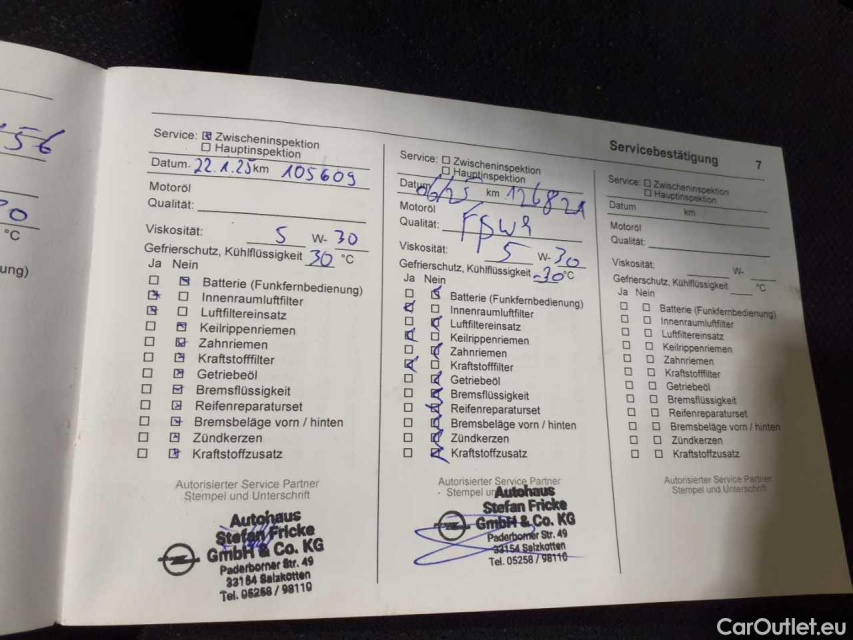 556
20
°C
ung)
Servicebestätigung 7
Service: Zwischeninspektion
Hauptinspektion
Datum 22.1.25 km 105609
Motoröl
Qualität:
Viskosität: 5 W- 30
Gefrierschutz, Kühlflüssigkeit 30 °C
Ja Nein
Batterie (Funkfernbedienung)
Innenraumluftfilter
Luftfiltereinsatz
Keilrippenriemen
Zahnriemen
Kraftstofffilter
Getriebeöl
Bremsflüssigkeit
Reifenreparaturset
Bremsbeläge vorn / hinten
Zündkerzen
Kraftstoffzusatz
Autorisierter Service Partner
Stempel und Unterschrift
Autohaus
Stefan Fricke
GmbH & Co. KG
Paderborner Str. 49
33154 Salzkotten
Tel. 05258 / 98110
Service: Zwischeninspektion
Hauptinspektion
Datum 06/25 km 126821
Motoröl
Qualität:
Viskosität: 5 W- 30
Gefrierschutz, Kühlflüssigkeit -30 °C
Ja Nein
Batterie (Funkfernbedienung)
Innenraumluftfilter
Luftfiltereinsatz
Keilrippenriemen
Zahnriemen
Kraftstofffilter
Getriebeöl
Bremsflüssigkeit
Reifenreparaturset
Bremsbeläge vorn / hinten
Zündkerzen
Kraftstoffzusatz
Autorisierter Service Partner
Stempel un
Autohaus
Stefan Fricke
GmbH & Co. KG
Paderborner Str. 49
33154 Salzkotten
Tel. 05258 / 98110
Service: Zwischeninspektion
Hauptinspektion
Datum km
Motoröl
Qualität:
Viskosität: W-
Gefrierschutz, Kühlflüssigkeit °C
Ja Nein
Batterie (Funkfernbedienung)
Innenraumluftfilter
Luftfiltereinsatz
Keilrippenriemen
Zahnriemen
Kraftstofffilter
Getriebeöl
Bremsflüssigkeit
Reifenreparaturset
Bremsbeläge vorn / hinten
Zündkerzen
Kraftstoffzusatz
Autorisierter Service Partner
Stempel und Unterschrift
CarOutlet.eu